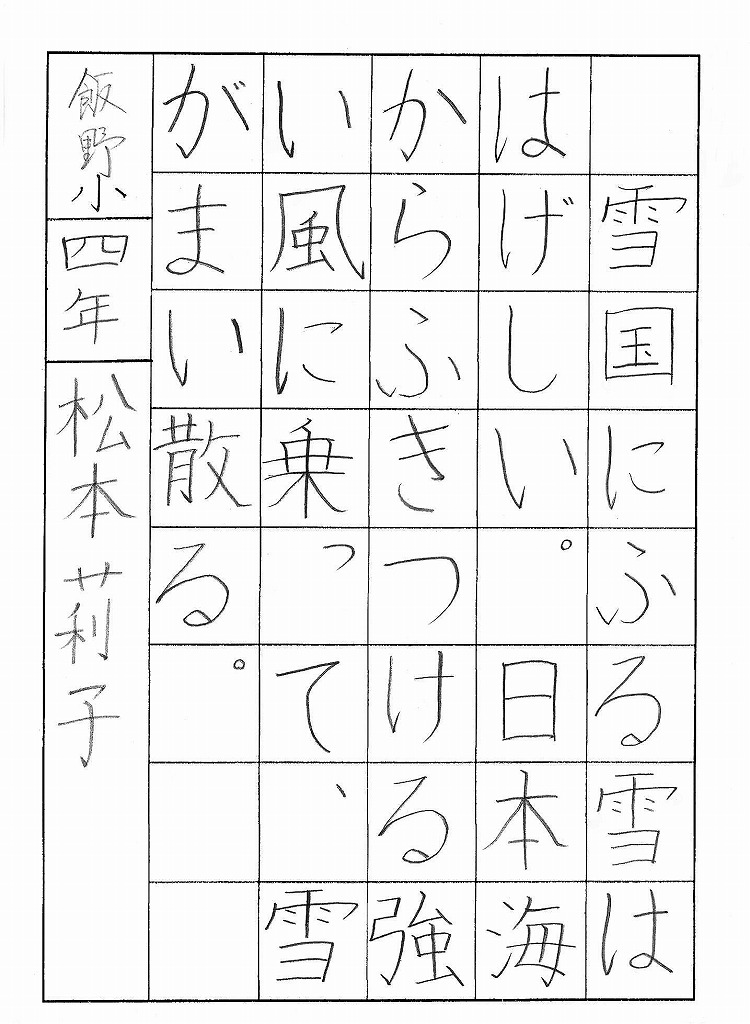 雪国にふる雪は
はげしい。日本海
からふきつける強
い風に乗って、雪
がまい散る。
飯野小
四年
松本莉子